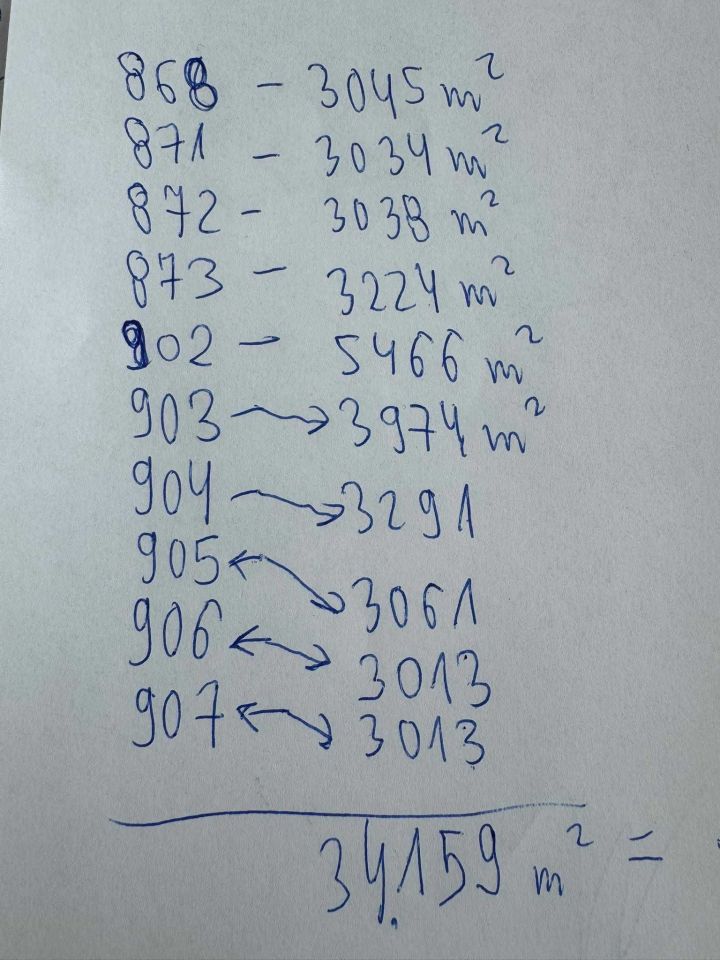 868 - 3045 m²
871 - 3034 m²
872 - 3038 m²
873 - 3224 m²
902 - 5466 m²
903 → 3974 m²
904 → 3291
905 ↔ 3061
906 ↔ 3013
907 ↔ 3013
34.159 m² =